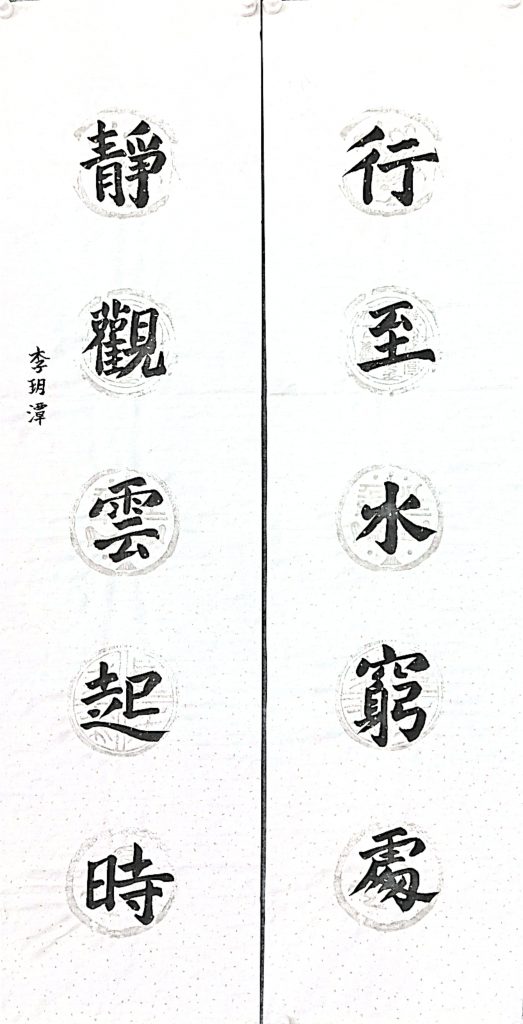 行至水窮處
靜觀雲起時
李玥潭